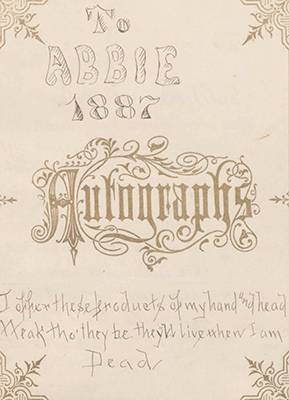 To
ABBIE
1887
Autographs
I offer these products of my hand and head
Weak tho' they be they'll live when I am
Dead